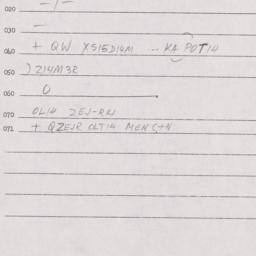 020 — / —
030 —
040 + QW XSISDI4M ... KA POTI4
050 ) ZI4M3R
060 O
070 OLI4 ZEJ-RN
071 + QZEJR OLTI4 MENC+N